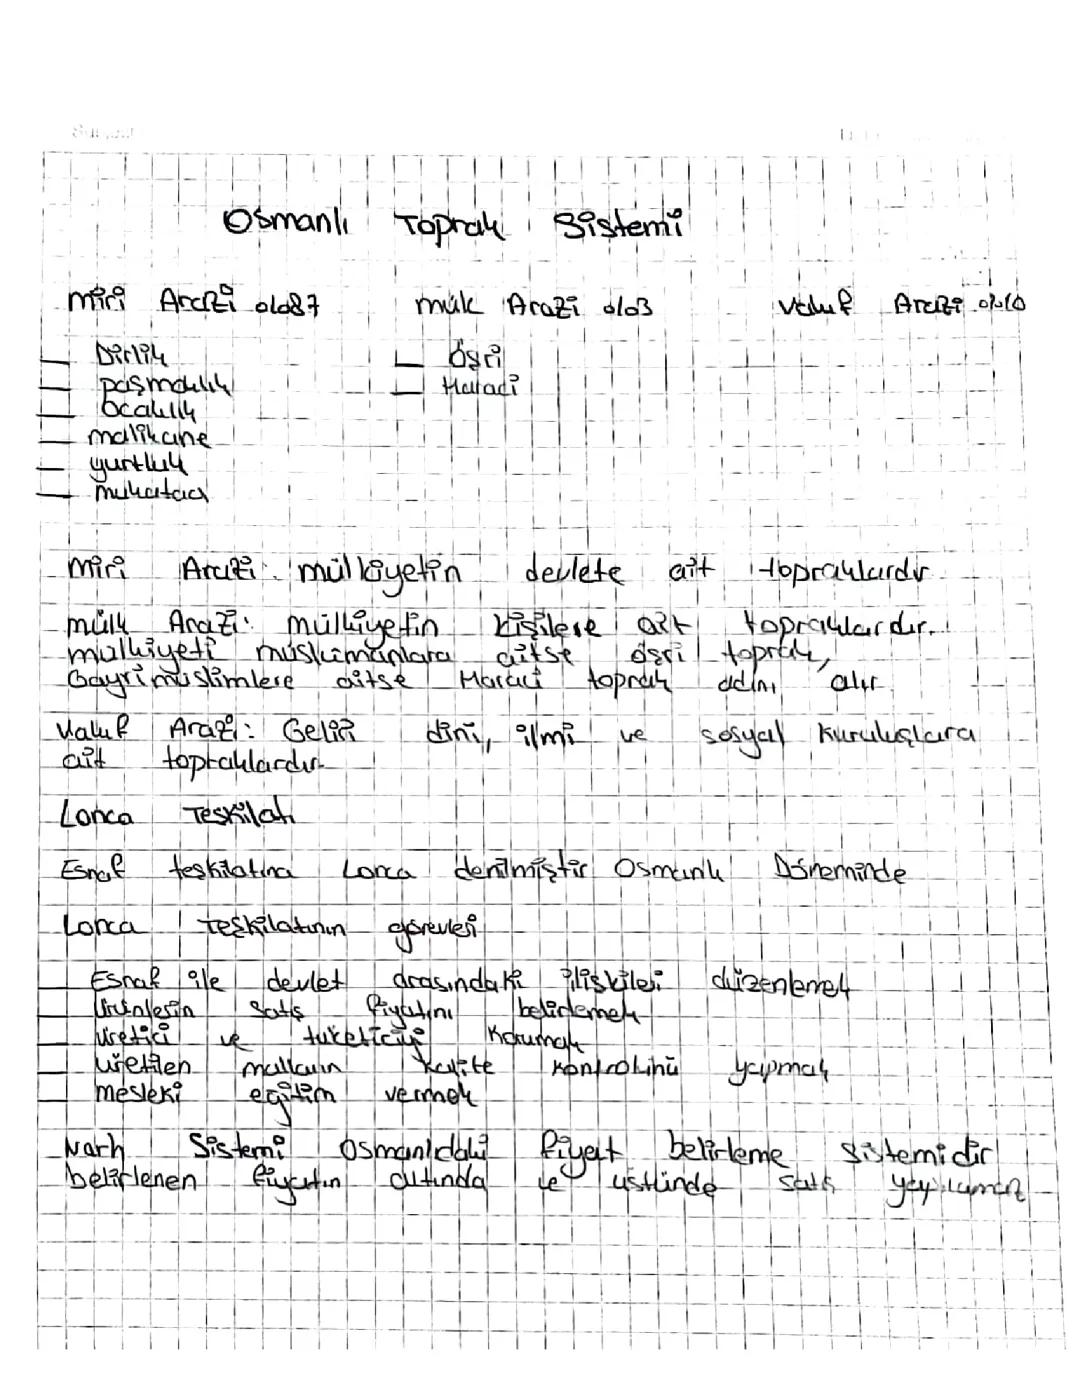 Osmanlı Toprak Sistemi
Miri Arazi %87 mülk Arazi %3 Vakıf Arazi %10
Dirlik Öşri
paşmaklık Haraci
Ocaklık
malikane
yurtluk
mukataa
Miri Arazi: mülkiyetin devlete ait topraklardır.
mülk Arazi: mülkiyetin kişilere ait topraklardır.
mülkiyeti müslümanlara aitse öşri toprak,
Gayrimüslimlere aitse Haraci toprak adını alır.
Vakıf Arazi: Geliri dini, ilmi ve sosyal kuruluşlara
ait topraklardır
Lonca Teşkilatı
Esnaf teşkilatına Lonca denilmiştir Osmanlı Döneminde
Lonca Teşkilatının görevleri
Esnaf ile devlet arasındaki ilişkileri düzenlemek
Ürünlerin Satış fiyatını belirlemek
Üretici ve tüketiciyi Korumak
üretilen malların kalite kontrolünü yapmak
mesleki eğitim vermek
Narh Sistemi Osmanlıdaki fiyat belirleme sistemidir
belirlenen fiyatın altında ve üstünde satış yapılamaz